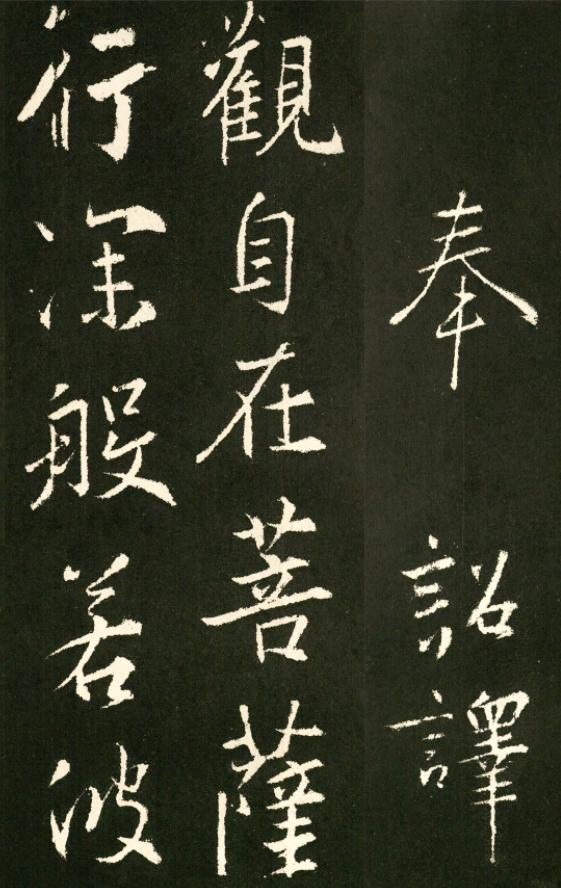 奉 詔譯
觀自在菩薩
行深般若波